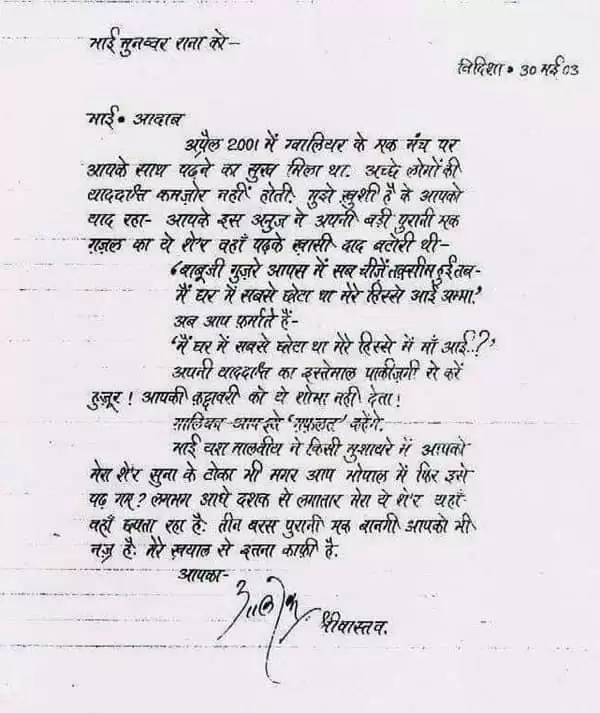 भाई मुनव्वर राना को-
विदिशा • 30 मई 03
भाई • आदाब
अप्रैल 2001 में ग्वालियर के एक मंच पर
आपके साथ पढ़ने का सुख मिला था. अच्छे लोगों की
याददाश्त कमज़ोर नहीं होती. मुझे ख़ुशी है के आपको
याद रहा- आपके इस अनुज ने अपनी बड़ी पुरानी एक
ग़ज़ल का ये शे'र वहाँ पढ़के ख़ासी दाद बटोरी थी-
'बाबूजी गुज़रे आपस में सब चीज़ें तक़्सीम हुईं तब-
मैं घर में सबसे छोटा था मेरे हिस्से आई अम्मा.'
अब आप फ़र्माते हैं-
'मैं घर में सबसे छोटा था मेरे हिस्से में माँ आई..?'
अपनी याददाश्त का इस्तेमाल पाकीज़गी से करें
हुज़ूर ! आपकी क़द्दावरी को ये शोभा नहीं देता !
ग़ालिबन आप इसे 'ग़फ़लत' कहेंगे.
भाई यश मालवीय ने किसी मुशायरे में आपको
मेरा शे'र सुना के टोका भी मगर आप भोपाल में फिर इसे
पढ़ गए ? लगभग आधे दशक से लगातार मेरा ये शे'र यहाँ-
वहाँ छपता रहा है: तीन बरस पुरानी एक बानगी आपको भी
नज़्र है: मेरे ख़याल से इतना काफ़ी है.
आपका-
आलोक श्रीवास्तव.